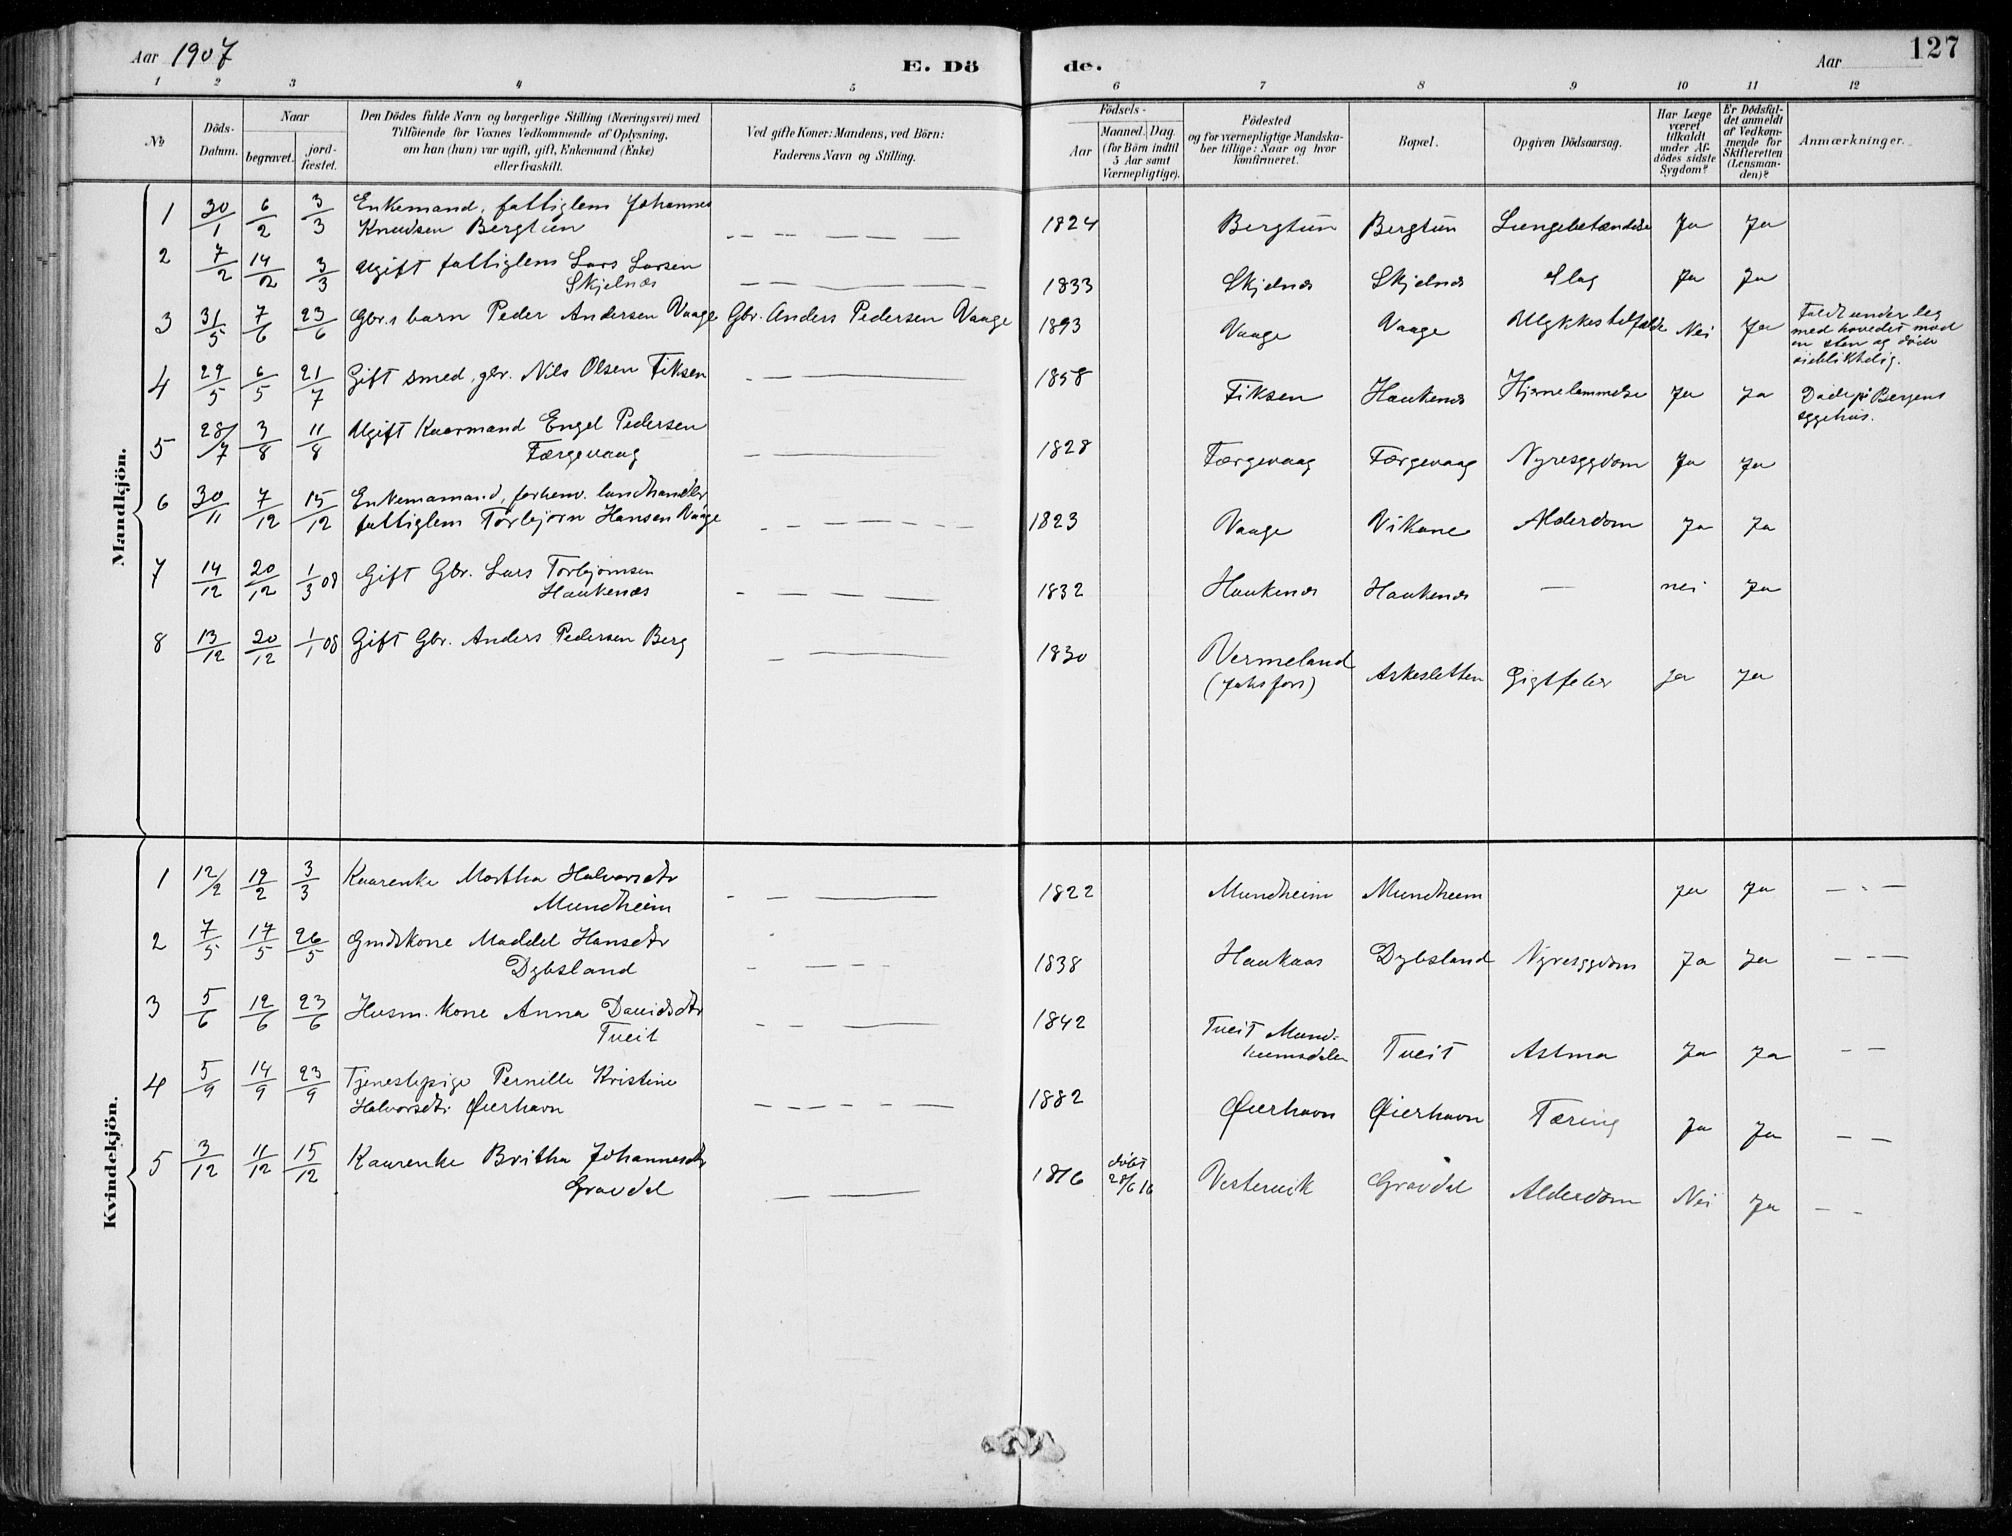 Aar 1907
E. Dö de.
Aar 127
1 2 3 4 5 6 7 8 9 10 11 12
No
Döds-Datum.
Naar
begravet.
jord-fæstet.
Den Dödes fulde Navn og borgerlige Stilling (Næringsvei) med
Tilföiende for Voxnes Vedkommende af Oplysning,
om han (hun) var ugift, gift, Enkemand (Enke)
eller fraskilt.
Ved gifte Koner: Mandens, ved Börn:
Faderens Navn og Stilling.
Födsels-
Aar
Maaned. Dag.
(for Börn indtil
5 Aar samt
Værnepligtige).
Födested
og for værnepligtige Mandska-
ber tillige: Naar og hvor
konfirmeret.
Bopæl.
Opgiven Dödsaarsag.
Har Læge
været
tilkaldt
under Af-
dödes sidste
Sygdom?
Er Dödsfal-
det anmeldt
af Vedkom-
mende for
Skifteretten
(Lensman-
den)?
Anmærkninger.
Mandkjön.
1 30/1 6/2 3/3 Enkemand, fattiglem Johannes
Knudsen Bergtun 1824 Bergtun Bergtun Lungebetændelse Ja Ja
2 7/2 14/2 3/3 Ugift fattiglem Lars Larsen
Skjelnæs 1833 Skjelnæs Skjelnæs Slag Ja Ja
3 31/5 7/6 23/6 Gbr.s barn Peder Andersen Vaage Gbr. Anders Pedersen Vaage 1893 Vaage Vaage Ulykkestilfælde Nei Ja Faldt under leg
med hovedet mod
en sten og døde
øieblikkelig.
4 29/5 6/5 21/7 Gift smed, gbr. Nils Olsen Fiksen 1858 Fiksen Haukenæs Hjernelammelse Ja Ja Døde på Bergens
sygehus.
5 28/7 3/8 11/8 Ugift Kaarmand Engel Pedersen
Færgevaag 1828 Færgevaag Færgevaag Nyresygdom Ja Ja
6 30/11 7/12 15/12 Enkemamand, forhenv. landhandler
fattiglem Torbjørn Hansen Vaage 1823 Vaage Vikane Alderdom Ja Ja
7 14/12 20/12 1/3 08 Gift Gbr. Lars Torbjørnsen
Haukenæs 1832 Haukenæs Haukenæs — nei Ja
8 13/12 20/12 1/1 08 Gift Gbr. Anders Pedersen Berg 1830 Vermeland Arkesletten Gigtfeber Ja Ja
Kvindekjön.
1 12/2 19/2 3/3 Kaarenke Martha Halvorsdtr
Mundheim 1822 Mundheim Mundheim Ja Ja
2 7/5 17/5 26/5 Gmdskone Maddel Hansdtr
Dybsland 1838 Haukaas Dybsland Nyresygdom Ja Ja
3 5/6 12/6 23/6 Husm. kone Anna Davidsdtr
Tveit 1842 Tveit Mund-
heimsdalen Tveit Astma Ja Ja
4 5/9 14/9 23/9 Tjenestepige Pernille Kristine
Halvorsdtr Øierhavn 1882 Øierhavn Øierhavn Tæring Ja Ja
5 3/12 11/12 15/12 Kaarenke Britha Johannesdtr
Gravdal 1816 døbt
28/6 16 Vestervik Gravdal Alderdom Nei Ja